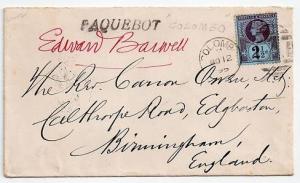 PAQUEBOT COLOMBO
Edward Barwell
COLOMB
NO 12
2½
The Rev. Canon Owen, M.A.
Calthorpe Road, Edgbaston,
Birmingham,
England.